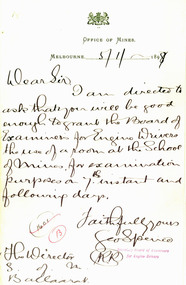 Office of Mines.
Melbourne, 5/1/ 1898
Dear Sir
I am directed to
ask that you will be good
enough to grant the Board of
Examiners for Engine Drivers
the use of a room at the School
of Mines, for examination
purposes on 7th instant and
following days.
Faithfully yours
Geo Spence
The Director
S. of M
Ballaarat